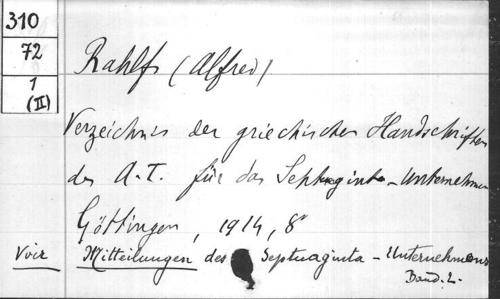 310
72
1
(II)
Rahlfs (Alfred)
Verzeichnis der griechischen Handschriften
des A.T. für das Septuaginta-Unternehmen
Göttingen, 1914, 8°
Voir Mitteilungen des Septuaginta-Unternehmens
Band. 2.